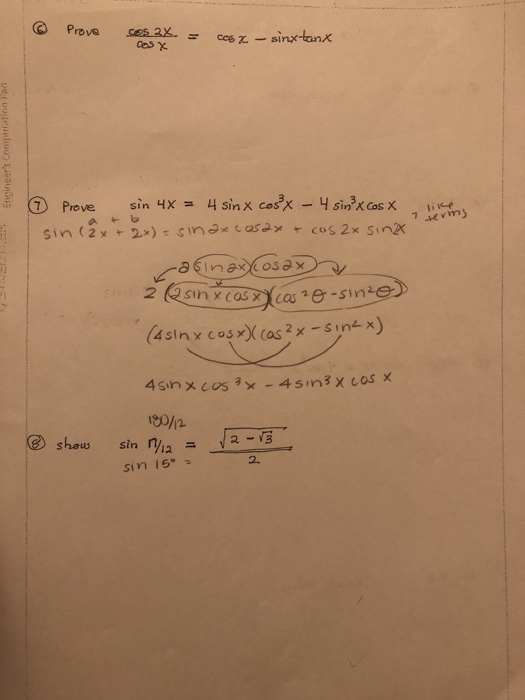 ⑥ Prove cos 2x / cos x = cos x - sinx tanx
Engineer's Computation Pad
⑦ Prove sin 4x = 4 sin x cos³x - 4 sin³x cos x
a + b
like terms
sin (2x + 2x) = sin 2x cos 2x + cos 2x sin 2x
2 sin 2x cos 2x
2 (2 sin x cos x)(cos²θ - sin²θ)
(4 sin x cos x)(cos²x - sin²x)
4 sin x cos³x - 4 sin³x cos x
180/12
⑧ show sin π/12 = √(2 - √3) / 2
sin 15° =